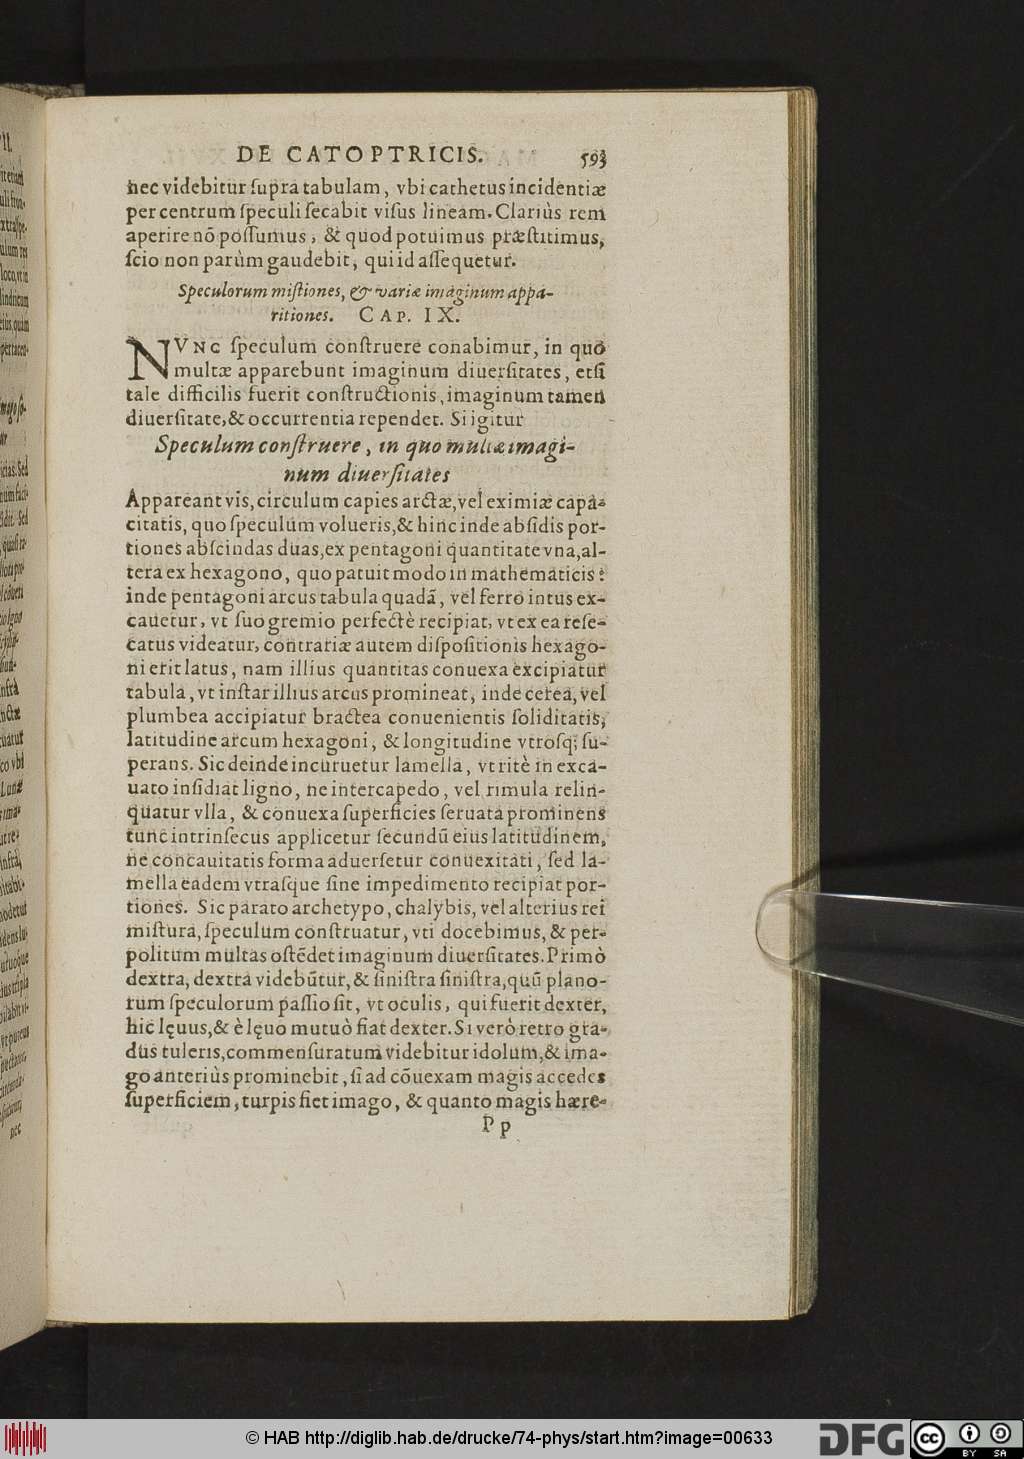 DE CATOPTRICIS. 593
nec videbitur ſupra tabulam, vbi cathetus incidentiæ
per centrum ſpeculi ſecabit viſus lineam. Clariùs rem
aperire nõ poſſumus, & quod potuimus præſtitimus,
ſcio non parùm gaudebit, qui id aſſequetur.
Speculorum miſtiones, & variæ imaginum appa-
ritiones. CAP. IX.
NVNC ſpeculum conſtruere conabimur, in quo
multæ apparebunt imaginum diuerſitates, etſi
tale difficilis fuerit conſtructionis, imaginum tamen
diuerſitate, & occurrentia rependet. Si igitur
Speculum conſtruere, in quo multæ imagi-
num diuerſitates
Appareant vis, circulum capies arctæ, vel eximiæ capa-
citatis, quo ſpeculum volueris, & hinc inde abſidis por-
tiones abſcindas duas, ex pentagoni quantitate vna, al-
tera ex hexagono, quo patuit modo in mathematicis:
inde pentagoni arcus tabula quadã, vel ferro intus ex-
cauetur, vt ſuo gremio perfectè recipiat, vt ex ea reſe-
catus videatur, contrariæ autem diſpoſitionis hexago-
ni erit latus, nam illius quantitas conuexa excipiatur
tabula, vt inſtar illius arcus promineat, inde cerea, vel
plumbea accipiatur bractea conuenientis ſoliditatis,
latitudine arcum hexagoni, & longitudine vtroſq; ſu-
perans. Sic deinde incuruetur lamella, vt ritè in exca-
uato inſidiat ligno, ne intercapedo, vel rimula relin-
quatur vlla, & conuexa ſuperficies ſeruata prominens
tunc intrinſecus applicetur ſecundũ eius latitudinem,
ne concauitatis forma aduerſetur conuexitati, ſed la-
mella eadem vtraſque ſine impedimento recipiat por-
tiones. Sic parato archetypo, chalybis, vel alterius rei
miſtura, ſpeculum conſtruatur, vti docebimus, & per-
politum multas oſtẽdet imaginum diuerſitates. Primò
dextra, dextra videbũtur, & ſiniſtra ſiniſtra, quũ plano-
rum ſpeculorum paſſio ſit, vt oculis, qui fuerit dexter,
hic lęuus, & è lęuo mutuò fiat dexter. Si verò retro gra-
dus tuleris, commenſuratum videbitur idolum, & ima-
go anteriùs prominebit, ſi ad cõuexam magis accedes
ſuperficiem, turpis fiet imago, & quanto magis hære-
Pp
© HAB http://diglib.hab.de/drucke/74-phys/start.htm?image=00633
DFG cc BY SA